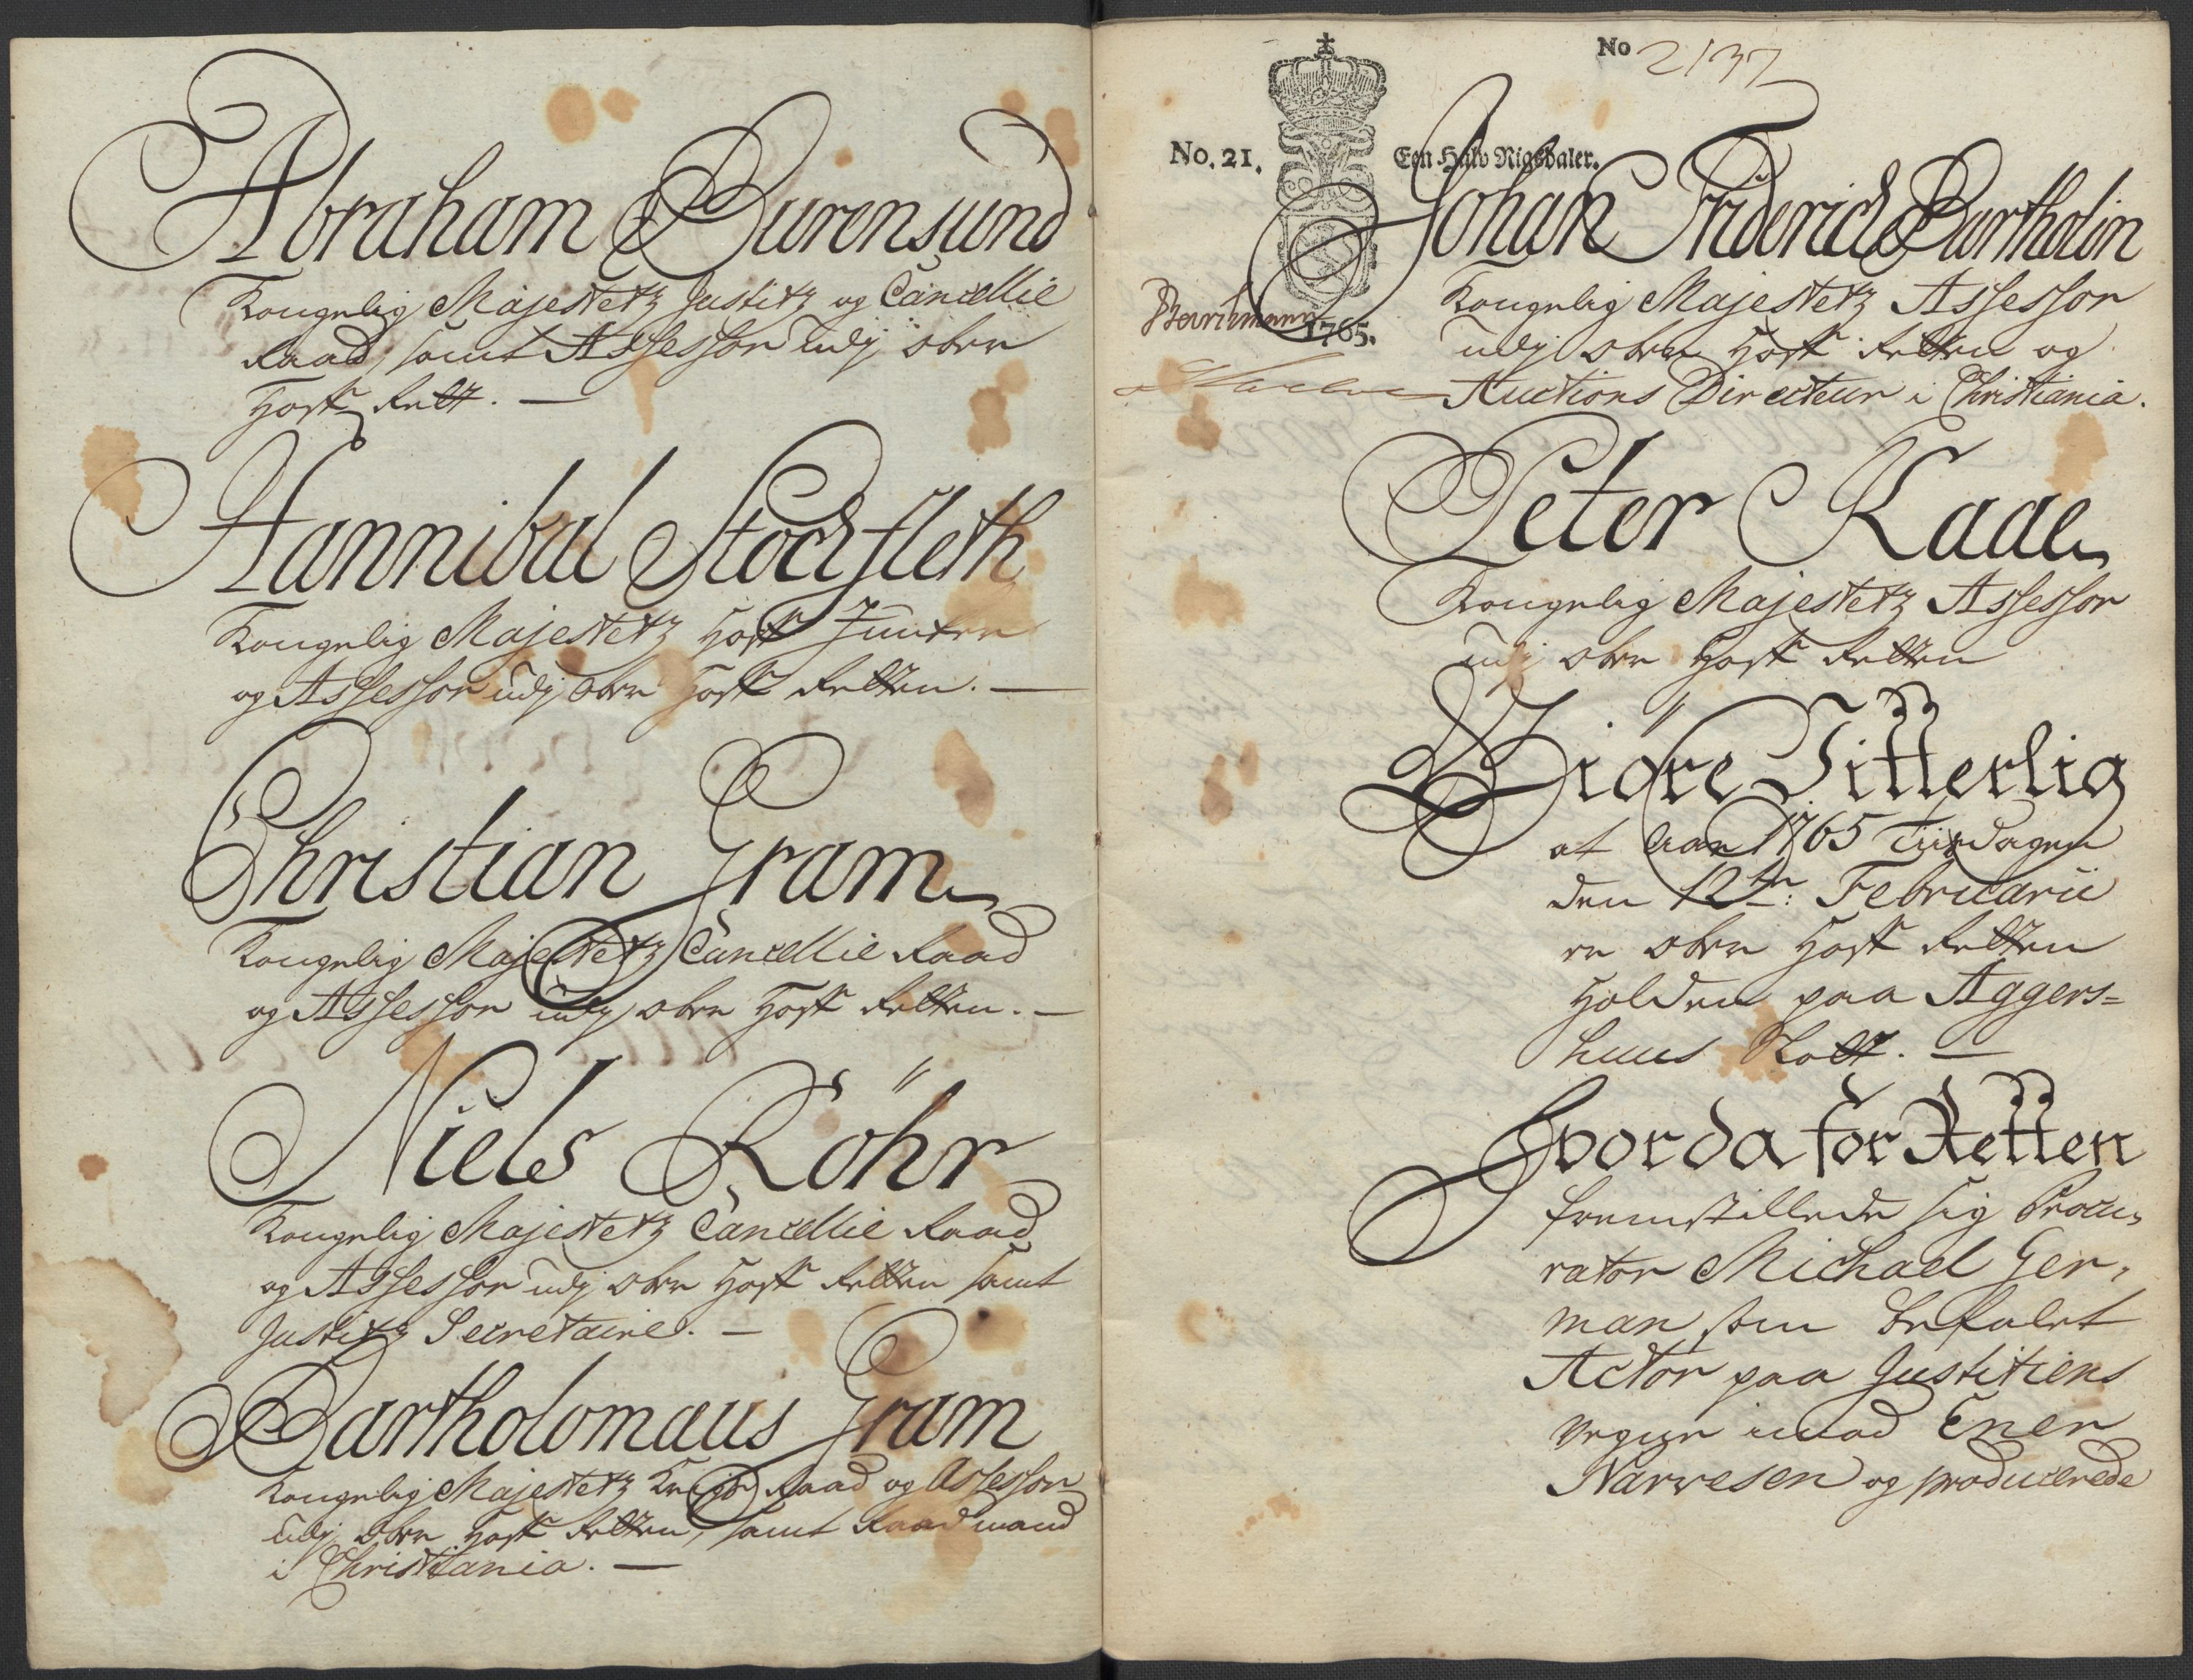 Abraham Burensund
Kongelig Majestetz Justitz og Cancellie
Raad, samt Assessor udj ober
Hoff Rett. —
Hannibal Stockfleth
Kongelig Majestetz Hoff Junker
og Assessor udj ober Hoff Retten. —
Christian Gram
Kongelig Majestetz Cancellie Raad
og Assessor udj ober Hoff Retten. —
Niels Röhr
Kongelig Majestetz Cancellie Raad
og Assessor udj ober Hoff Retten samt
Justitz Secretaire. —
Bartholomæus Gram
Kongelig Majestetz Raad og Assessor
udj ober Hoff Retten, samt Raadmand
i Christiania. —
No 2137
No. 21.
Een Halv Rigsdaler.
1765.
Johan Friderich Bartholin
Kongelig Majestetz Assessor
udj ober Hoff Retten og
Auctions Directeur i Christiania.
Peter Kaae
Kongelig Majestetz Assessor
udj ober Hoff Retten
Giöre Vitterlig
at Aar 1765 Tiisdagen
den 12te: Februarii
er ober Hoff Retten
Holden paa Aggers=
huus Slott. —
Hvorda for Retten
fremstillede sig Procu,
rator Michael Ger,
man som befalet
Actor paa Justitiens
vegne imod Ener
Narvesen og producerede